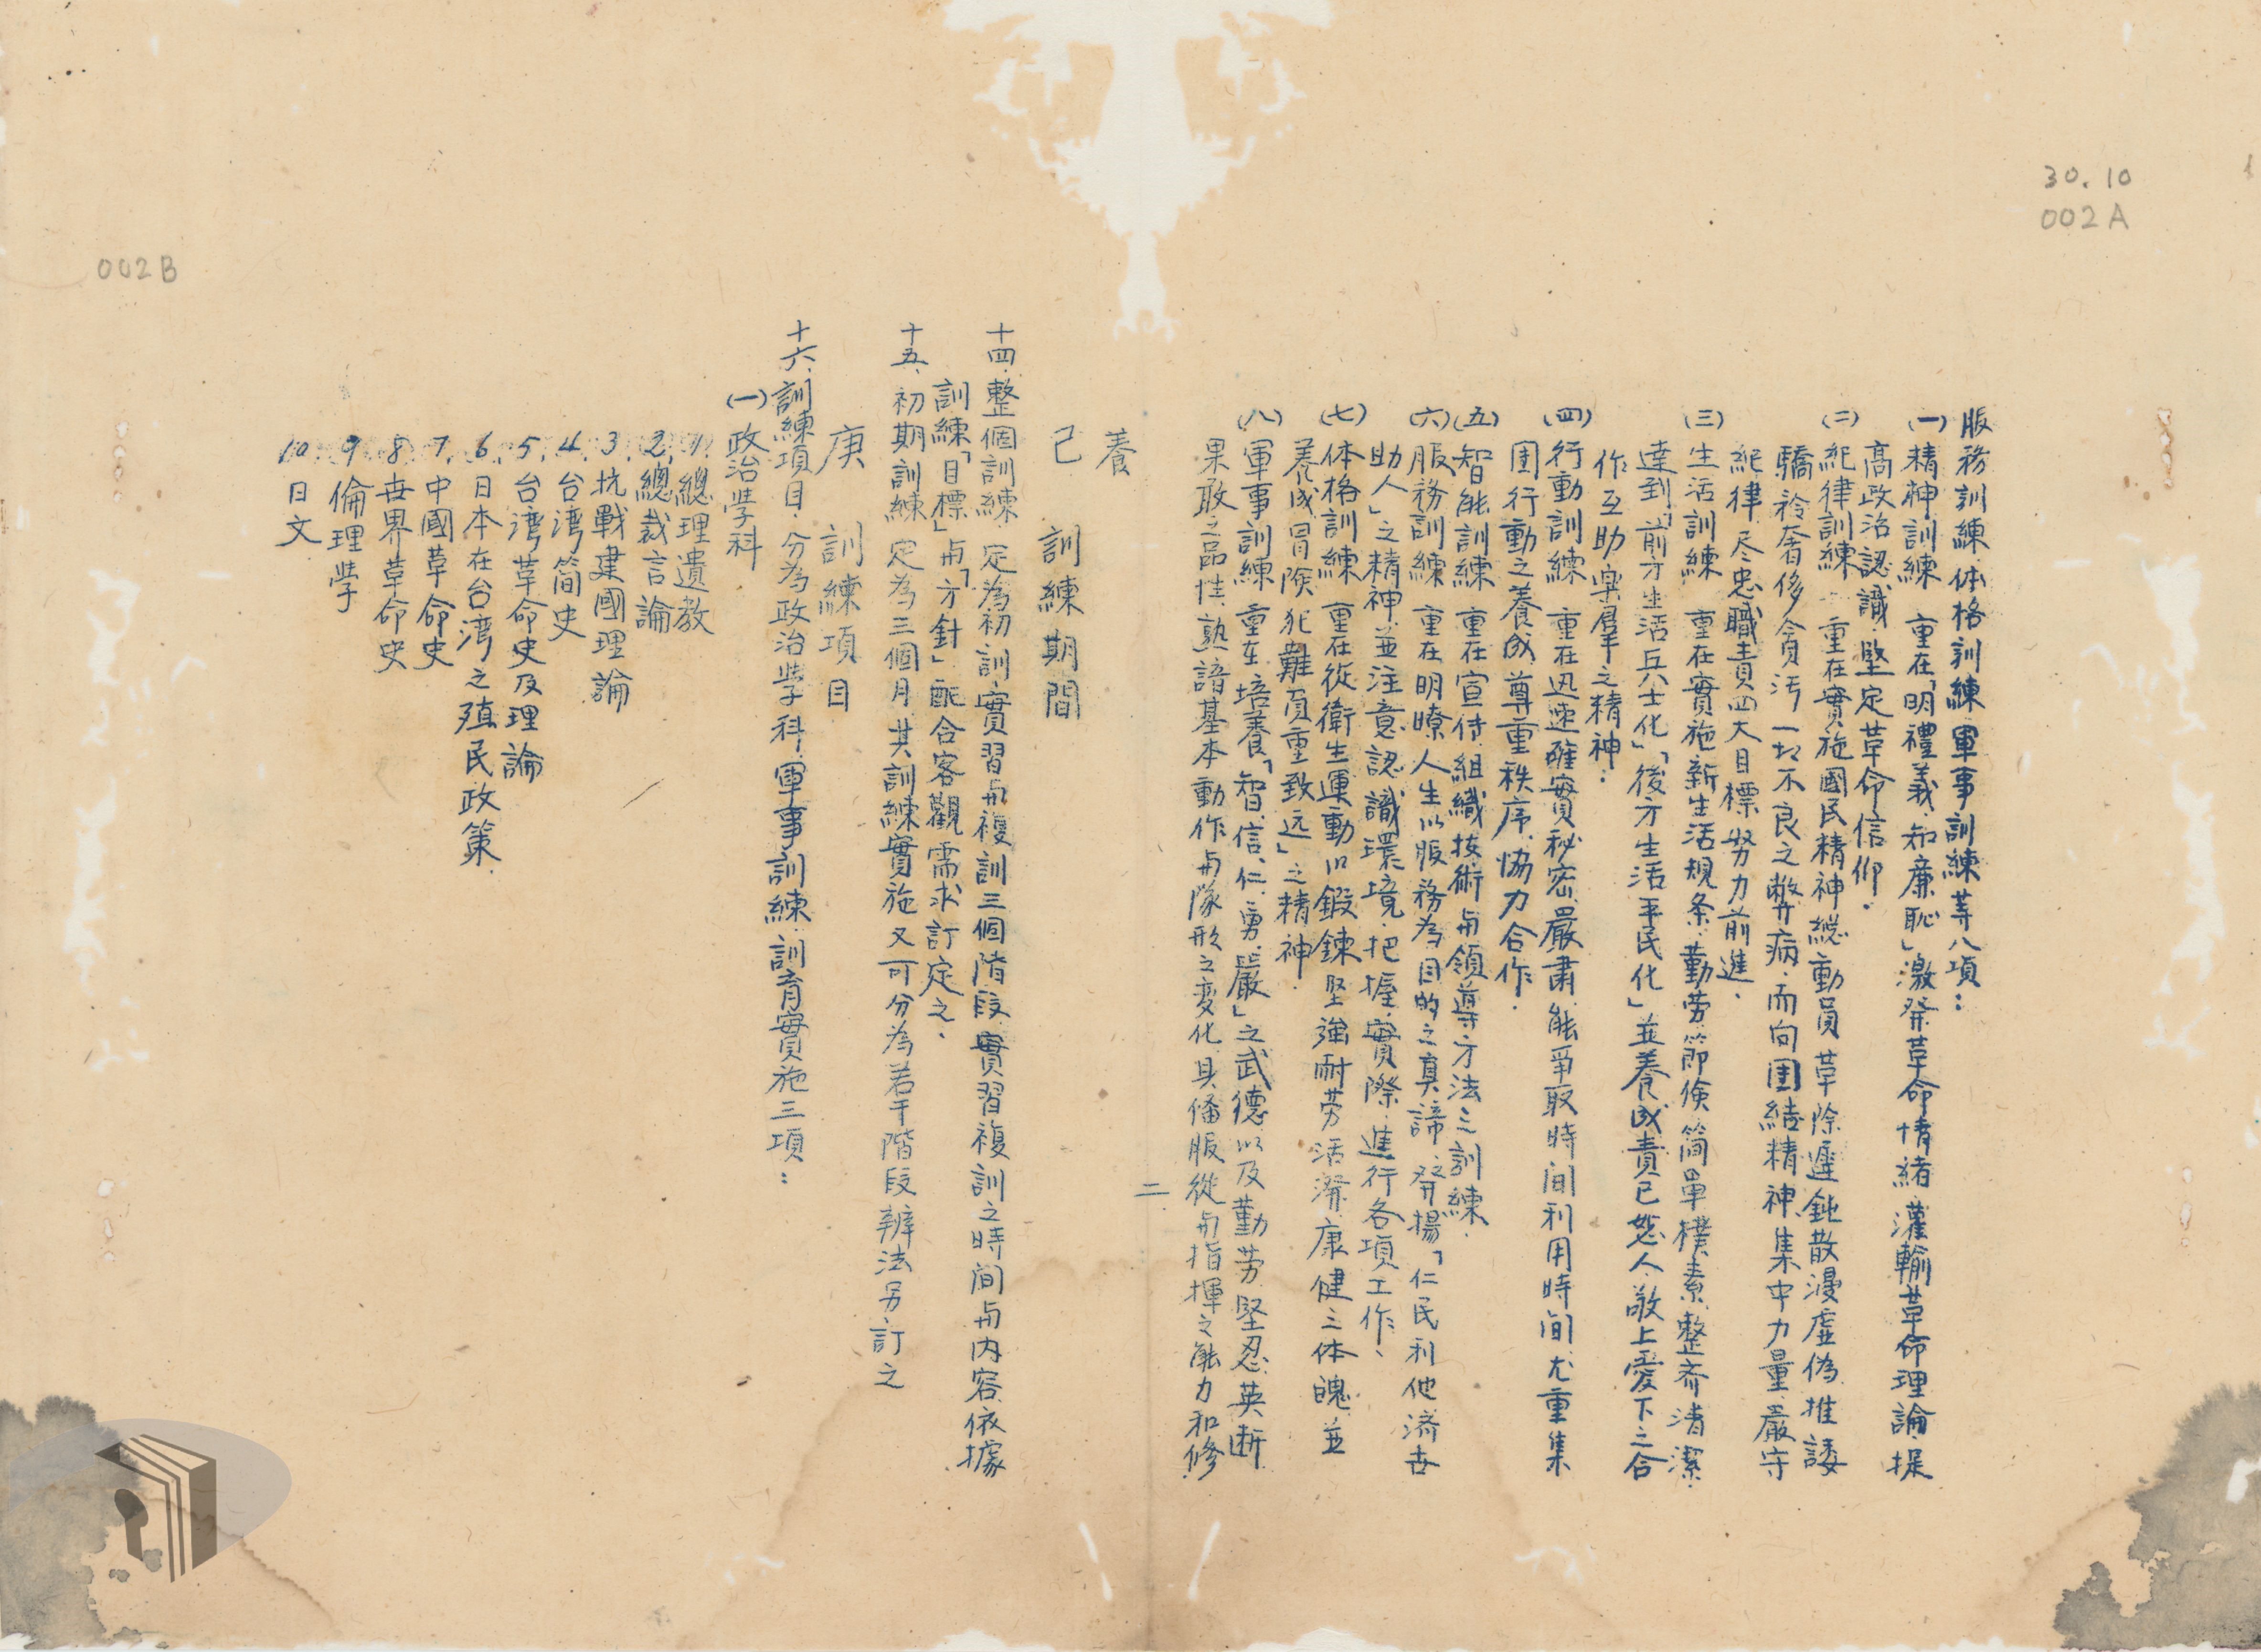 30.10
002A
服務訓練、体格訓練、軍事訓練等八項：
(一)精神訓練 重在「明禮義、知廉恥」激發革命情緒、灌輸革命理論、提
高政治認識、堅定革命信仰。
(二)紀律訓練 重在實施國民精神總動員、革除遲鈍散漫虛偽推諉
驕矜奢侈貪汚一切不良之弊病、而向團結精神、集中力量、嚴守
紀律、尽忠職責四大目標努力前進、
(三)生活訓練 重在實施新生活規条、勤劳節儉、简單樸素、整齐清潔、
達到「前方生活兵士化」「後方生活平民化」並養成責己恕人、敬上愛下之合
作互助樂羣之精神：
(四)行動訓練 重在迅速確實秘密嚴肅、能爭取時间利用時间、尤重集
団行動之養成、尊重秩序、協力合作。
(五)智能訓練 重在宣传組織技術与領導方法之訓練。
(六)服務訓練 重在明瞭人生以服務為目的之真諦、發揚「仁民利他濟世
助人」之精神、並注意認識環境、把握實際、進行各項工作、
(七)体格訓練 重在從衛生運動以鍛鍊堅強耐劳活潑康健之体魄、並
養成冒险犯難、負重致远」之精神。
(八)軍事訓練 重在培養「智、信、仁、勇、嚴」之武德、以及勤劳堅忍英断
果敢之品性、熟諳基本動作与隊形之变化、具俻服從与指揮之能力和修
二
養
己 訓練期間
十四、整個訓練 定為初訓、實習与複訓三個階段、實習複訓之時间与内容、依據
訓練「目標」与「方針」配合客觀需求訂定之、
十五、初期訓練 定為三個月、其訓練實施又可分為若干階段、辦法另訂之
庚 訓練項目
十六、訓練項目、分為政治學科、軍事訓練、訓育實施三項：
(一)政治學科
1.總理遺教
2.總裁言論
3.抗戰建國理論
4.台湾简史
5.台湾革命史及理論
6.日本在台湾之殖民政策
7.中國革命史
8.世界革命史
9.倫理學
10.日文
002B